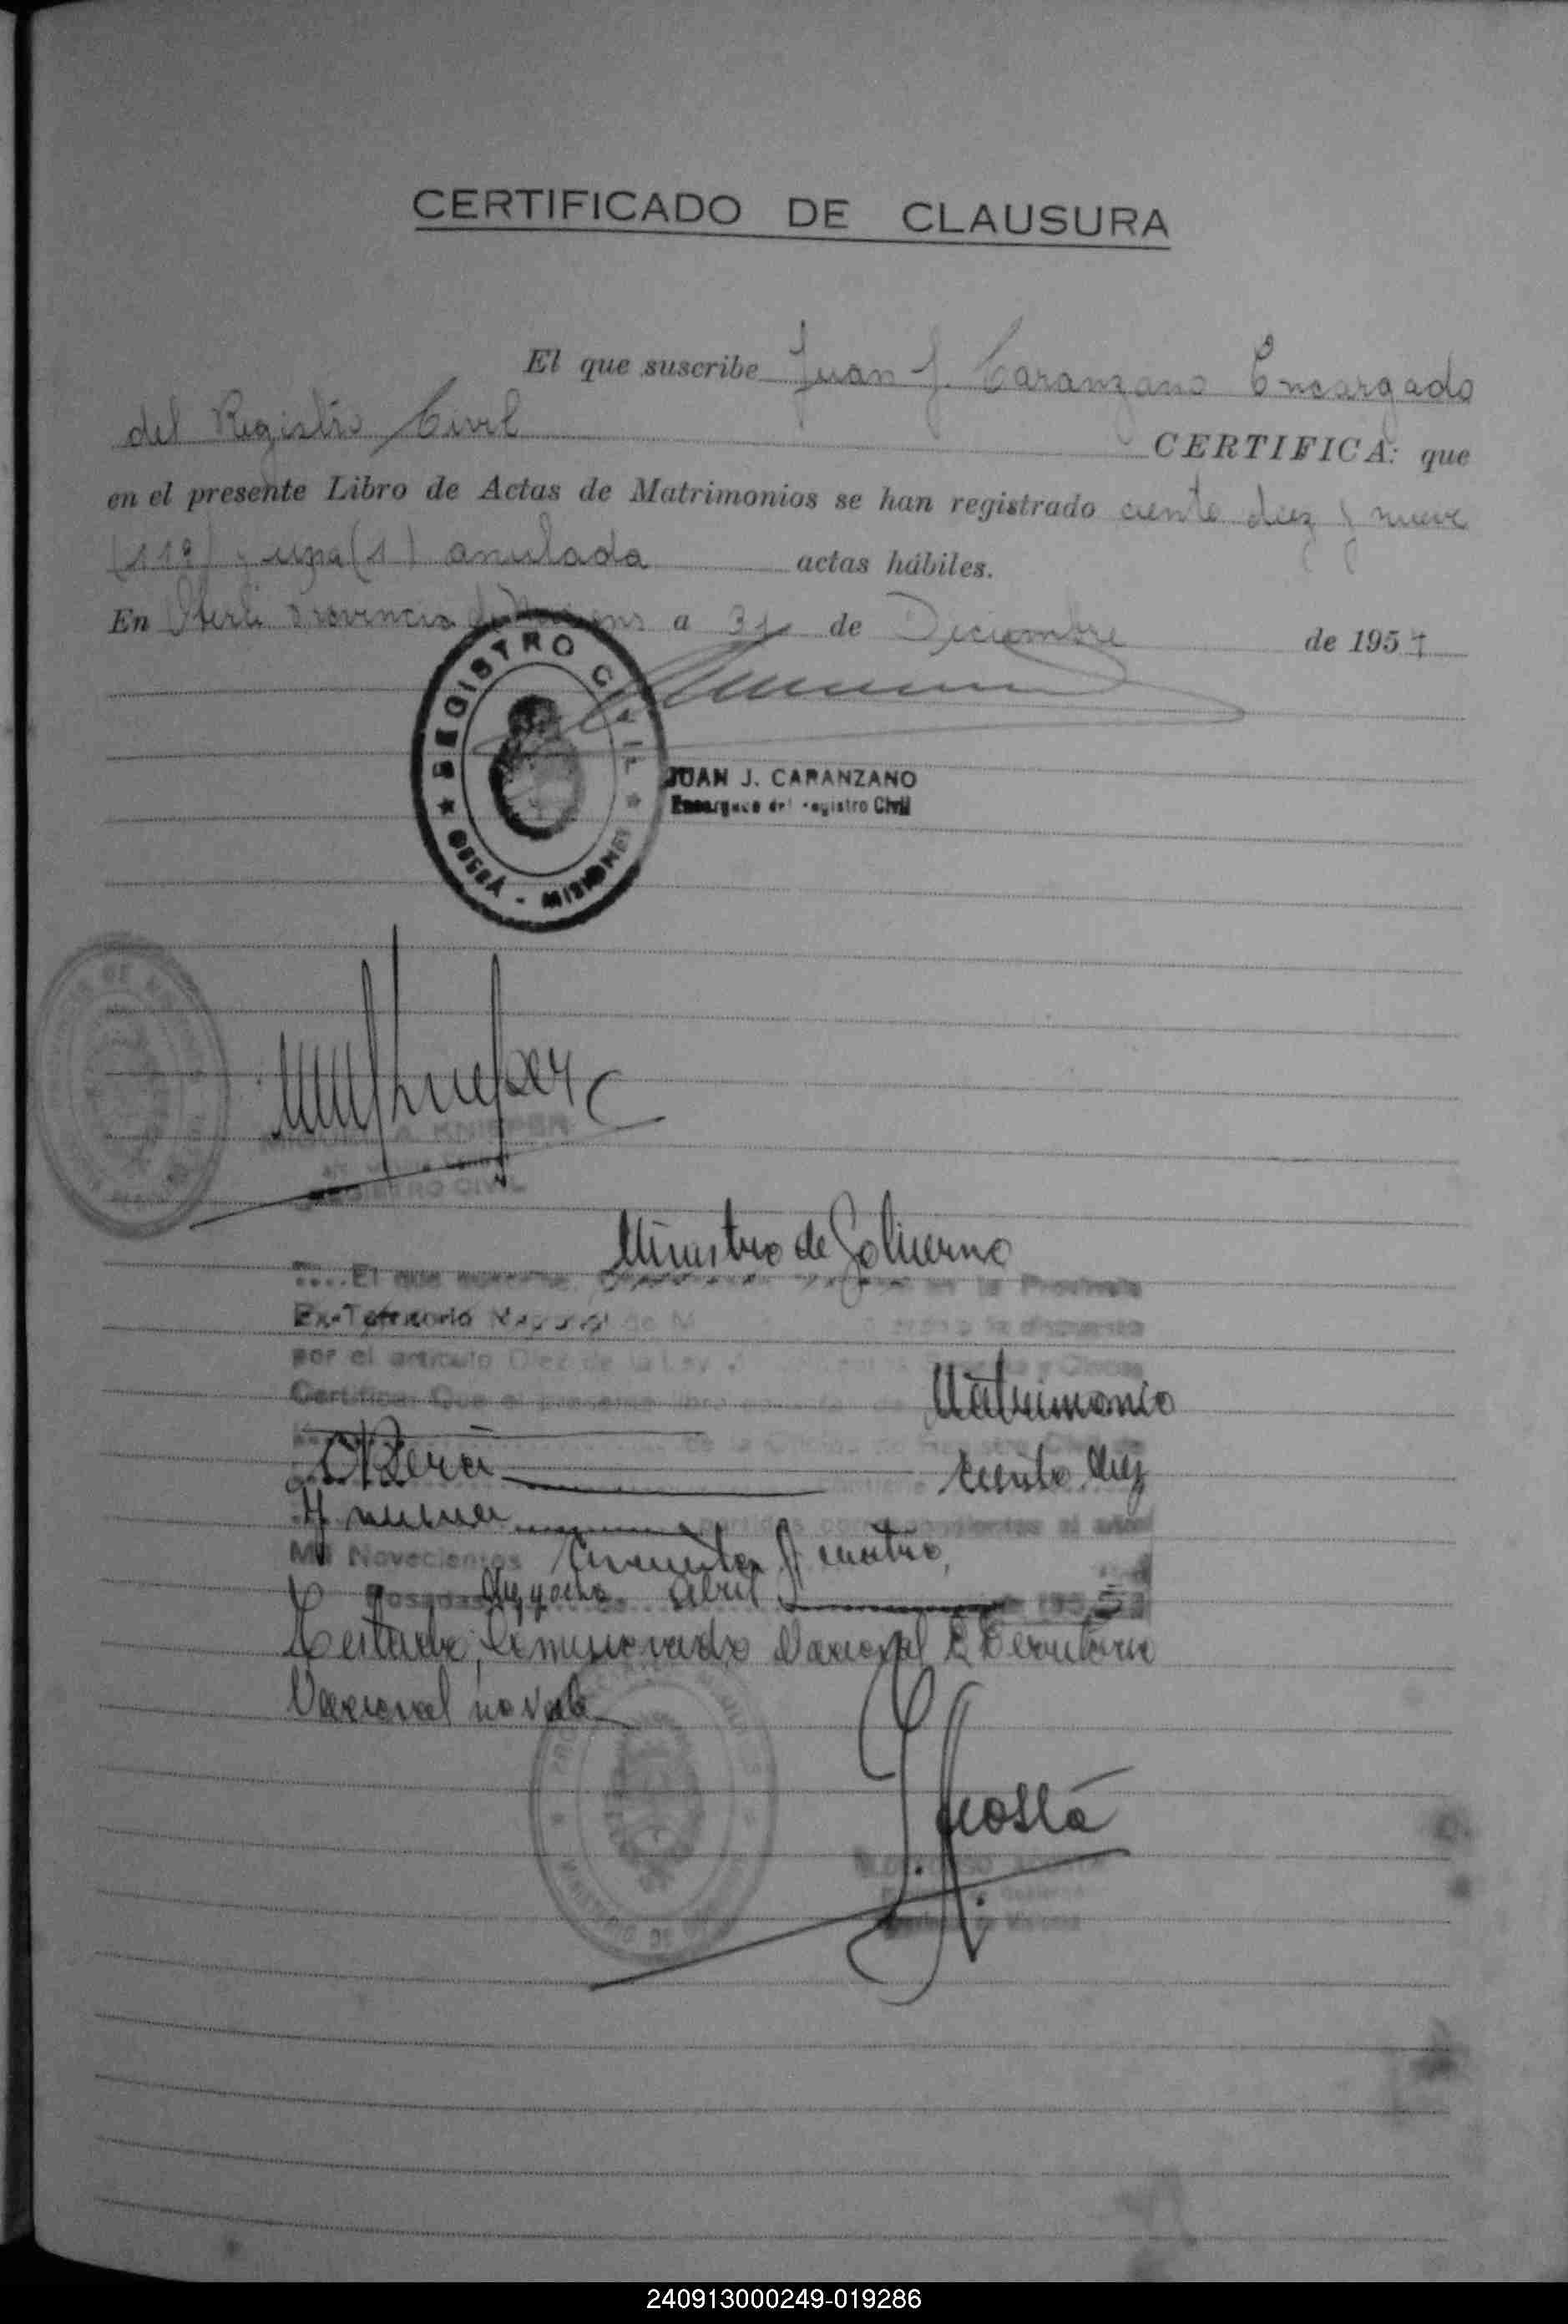 CERTIFICADO DE CLAUSURA
El que suscribe Juan J. Caranzano Encargado
del Registro Civil CERTIFICA: que
en el presente Libro de Actas de Matrimonios se han registrado ciento diez y nueve
(119) y una (1) anulada actas hábiles.
En Oberá Provincia de Misiones a 31 de Diciembre de 1954
REGISTRO CIVIL
OBERÁ - MISIONES
JUAN J. CARANZANO
Encargado del Registro Civil
A. KNIEPER
REGISTRO CIVIL
Ministro de Gobierno
El que suscribe, en la Provincia
Ex-Territorio Nacional de a lo dispuesto
por el artículo Diez de la Ley
Certifica: Que el presente libro Matrimonio
de la Oficina de Registro Civil de
Oberá contiene ciento diez
y nueve partidas correspondientes al año
Mil Novecientos cincuenta y cuatro,
Posadas, diez y ocho de abril de 195
Testado; Comisionado Nacional Territorio
Nacional no vale
Acosta
240913000249-019286